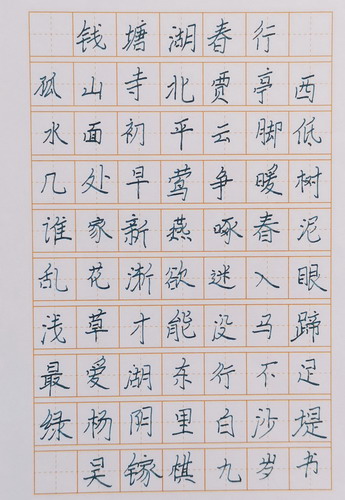 钱塘湖春行
孤山寺北贾亭西
水面初平云脚低
几处早莺争暖树
谁家新燕啄春泥
乱花渐欲迷入眼
浅草才能没马蹄
最爱湖东行不足
绿杨阴里白沙堤
吴镓棋九岁书